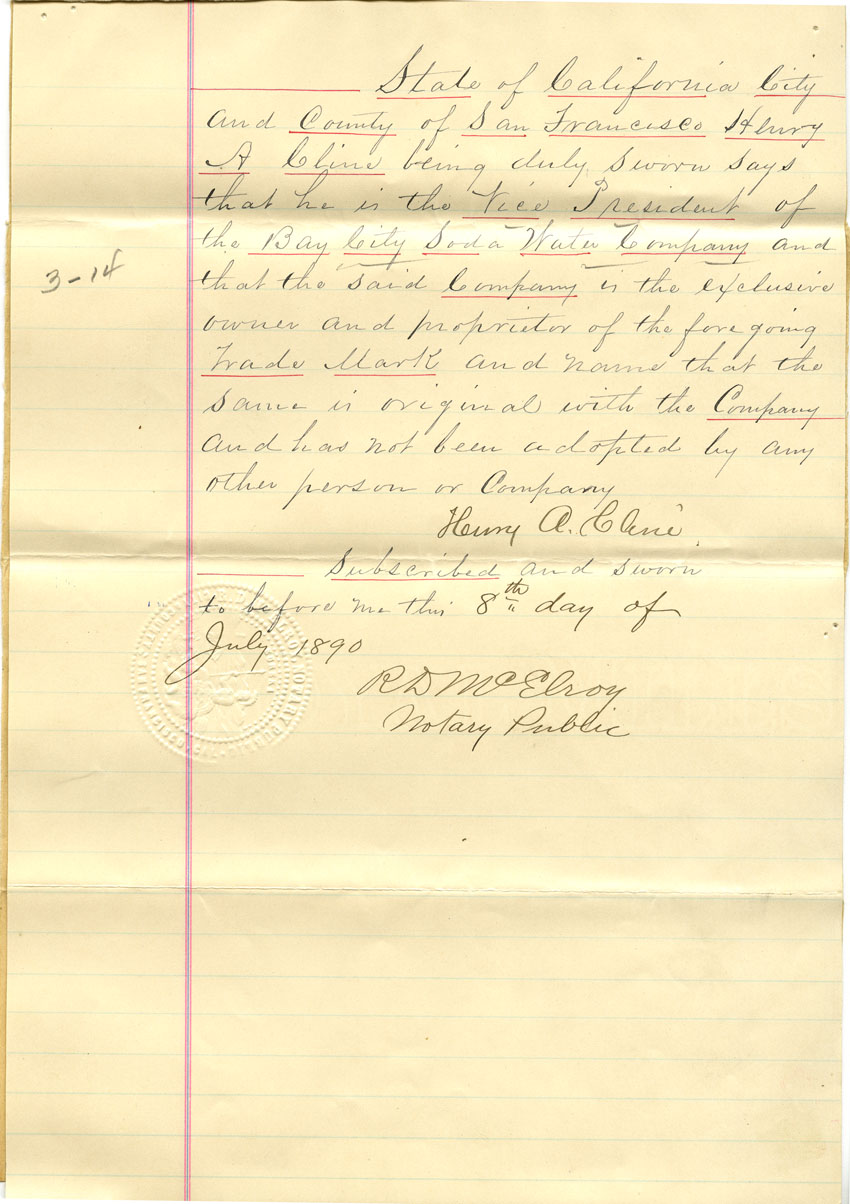 State of California City
and County of San Francisco Henry
A Cline being duly sworn says
that he is the Vice President of
the Bay City Soda Water Company and
3-14
that the said Company is the exclusive
owner and proprietor of the foregoing
Trade Mark and name that the
same is original with the Company
and has not been adopted by any
other person or Company
Henry A. Cline
Subscribed and sworn
to before me this 8th day of
July 1890
R D McElroy
Notary Public